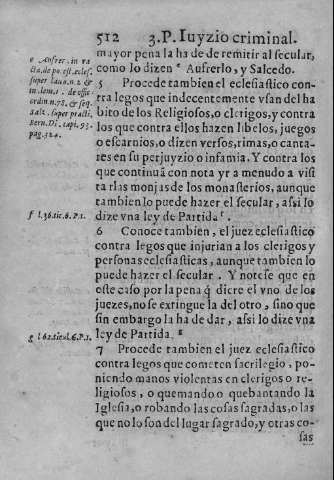 512 3.P. Iuyzio criminal.
mayor pena la ha de de remitir al secular,
como lo dizen e Aufrerlo, y Salcedo.
5 Procede tambien el eclesiastico con-
tra legos que indecentemente vsan del ha
bito de los Religiosos, o clerigos, y contra
los que contra ellos hazen libelos, juegos
o escarnios, o dizen versos, rimas, o canta-
res en su perjuyzio o infamia. Y contra los
que continuã con nota yr a menudo a visi
tar las monjas de los monasterios, aunque
tambien lo puede hazer el secular, assi lo
dize vna ley de Partida f.
6 Conoce tambien, el juez eclesiastico
contra legos que injurian a los clerigos y
personas eclesiasticas, aunque tambien lo
puede hazer el secular. Y notese que en
este caso por la pena q̃ diere el vno de los
juezes, no se extingue la del otro, sino que
sin embargo la ha de dar, assi lo dize vna
ley de Partida. g
7 Procede tambien el juez eclesiastico
contra legos que cometen sacrilegio, po-
niendo manos violentas en clerigos o re-
ligiosos, o quemando o quebantando la
Iglesia, o robando las cosas sagradas, o las
que no lo son del lugar sagrado, y otras co-
sas
e Aufrer. in ra
super
ordin. n. 78. & seq.
super practi.
Bern. Di. capi. 93.
pag. 324.
f l. 36. tit. 6. P. 1.
g l. 62. titul. 6. P. 1.